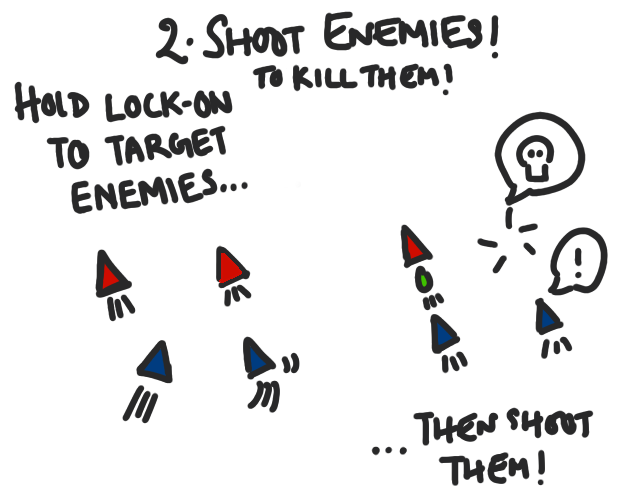 2. SHOOT ENEMIES!
TO KILL THEM!
HOLD LOCK-ON
TO TARGET
ENEMIES...
!
... THEN SHOOT
THEM!